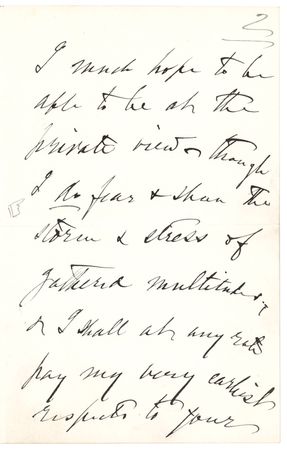 2
I much hope to be
able to be at the
private view, though
I do fear & shun the
storm & stress of
gathered multitudes;
or I shall at any rate
pay my very earliest
respects to your